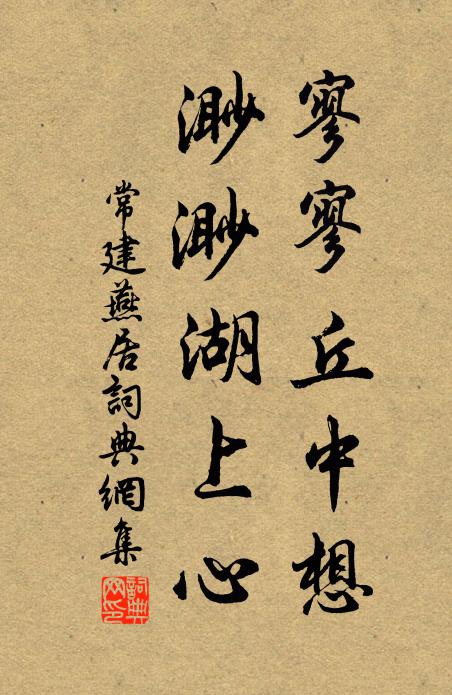 寥寥丘中想
渺渺湖上心
常建燕居詞典網集
詞典网印